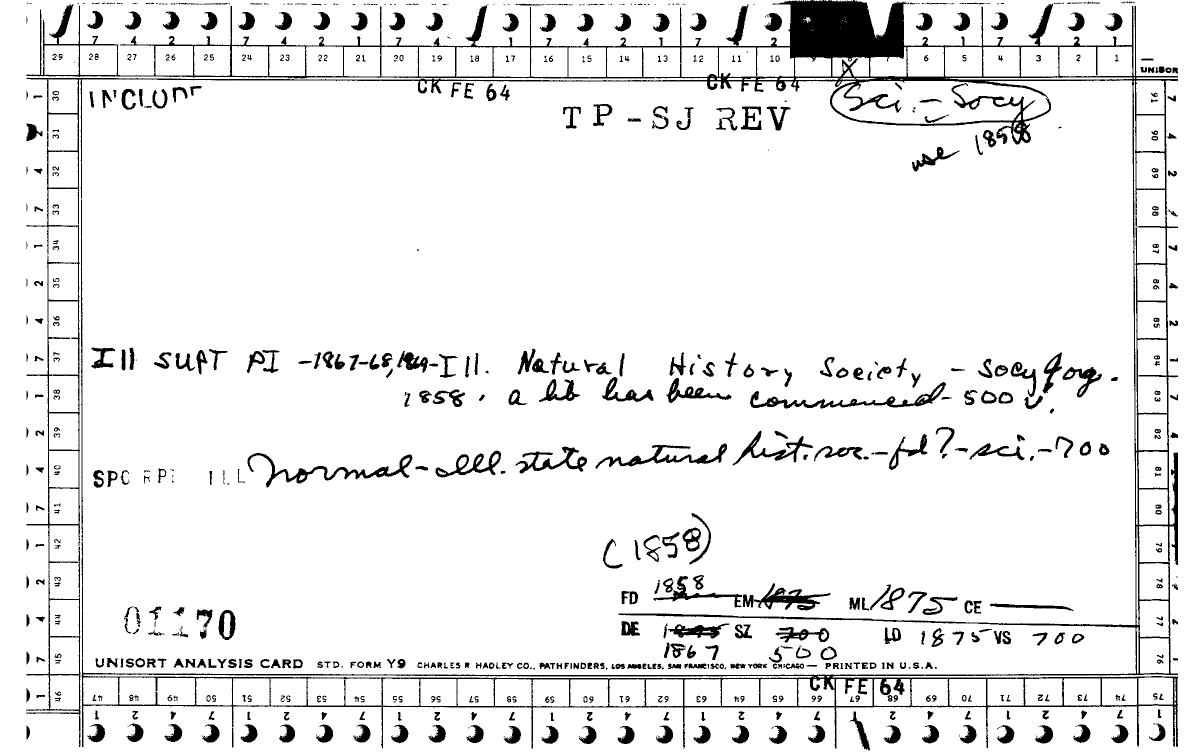 7 4 2 1 7 4 2 1 7 4 2 1 7 4 2 1 7 4 2 1 7 4 2 1
29 28 27 26 25 24 23 22 21 20 19 18 17 16 15 14 13 12 11 10 9 8 7 6 5 4 3 2 1
UNISOR
INCLUDE CK FE 64 CK FE 64 Sci. - Socy
TP-SJ REV
use 1858
Ill SUPT PI -1867-68, 1869-Ill. Natural History Society - Socy org.
1858. a lib has been commenced - 500 v.
SPC RPT ILL Normal - Ill. state natural hist. soc. - fd? - sci. - 700
(1858)
FD 1858 EM 1875 ML 1875 CE
DE 1875 SZ 700 LD 1875 VS 700
1867 500
01170
UNISORT ANALYSIS CARD STD. FORM Y9 CHARLES R HADLEY CO., PATHFINDERS, LOS ANGELES, SAN FRANCISCO, NEW YORK CHICAGO — PRINTED IN U.S.A.
CK FE 64
30 31 32 33 34 35 36 37 38 39 40 41 42 43 44 45 46
91 90 89 88 87 86 85 84 83 82 81 80 79 78 77 76 75
47 48 49 50 51 52 53 54 55 56 57 58 59 60 61 62 63 64 65 66 67 68 69 70 71 72 73 74